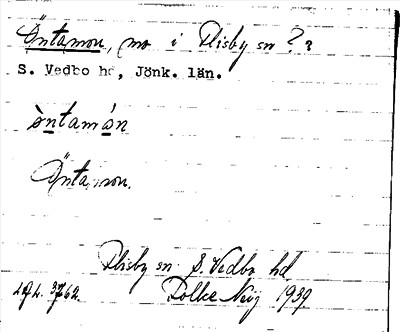 Äntamon, mo i Flisby sn ?
S. Vedbo hd, Jönk. län.
ὲntamȧn
Äntamon.
Flisby sn. S. Vedbo hd
Folke Neij 1939